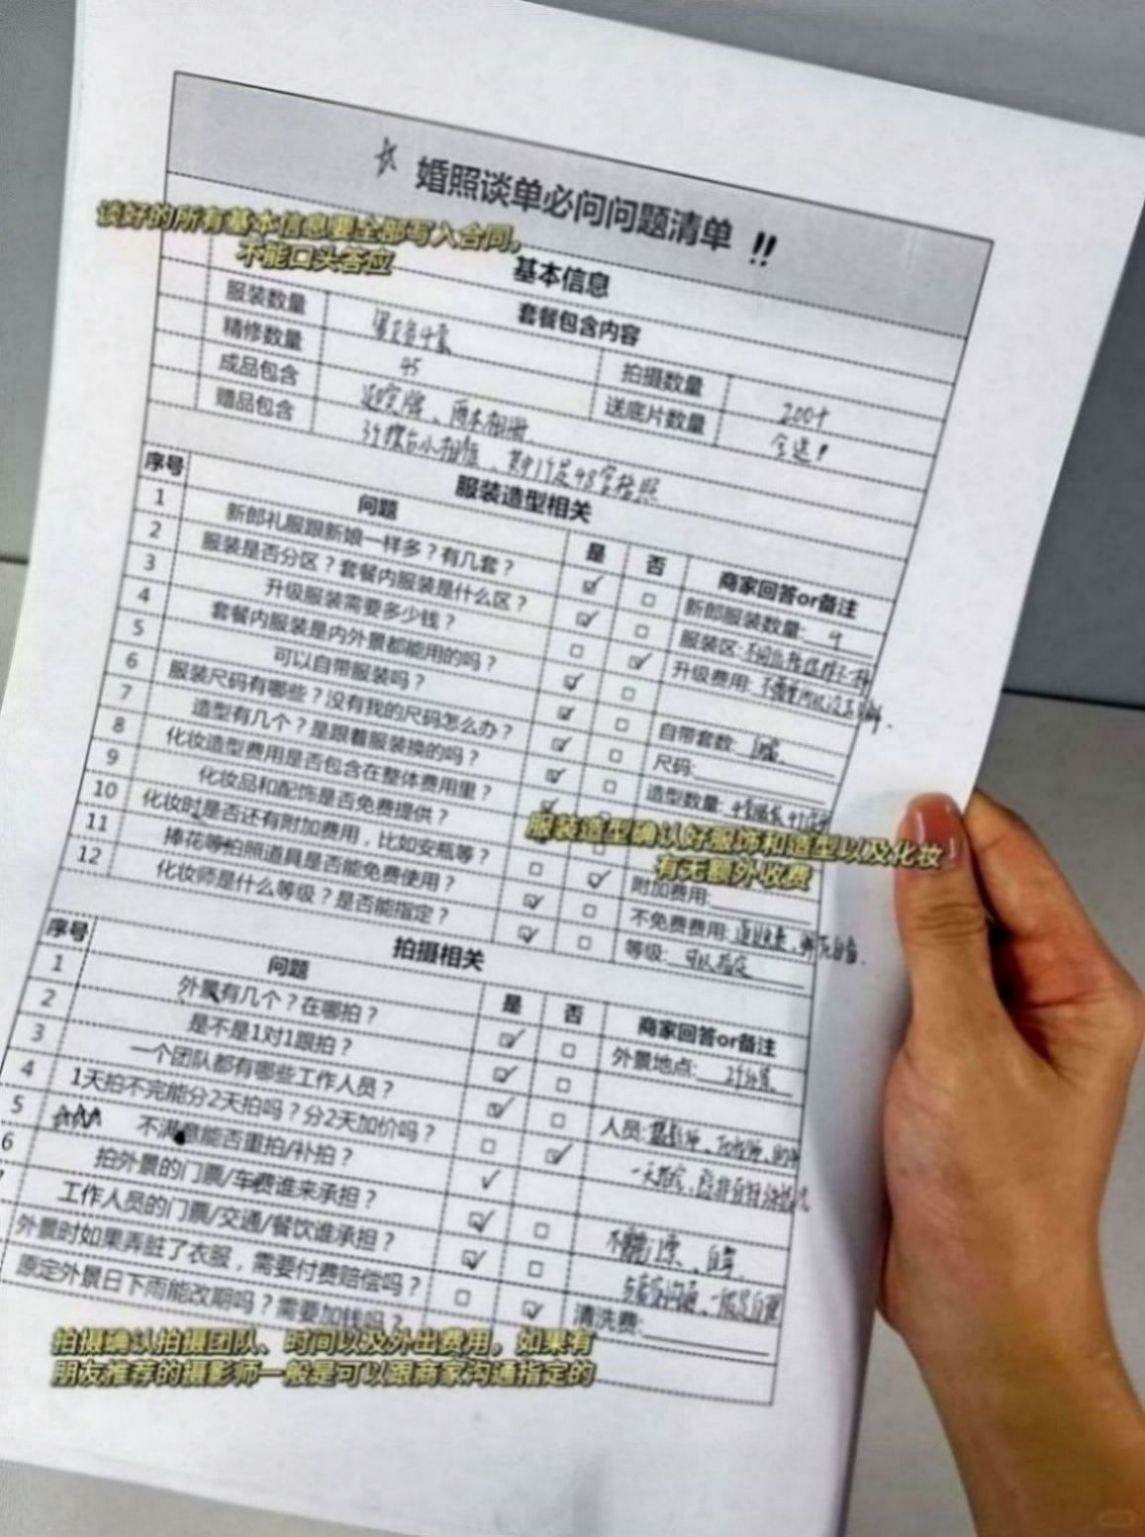 婚照谈单必问问题清单 !!
谈好的所有基本信息要全部写入合同，
不能口头答应
基本信息
套餐包含内容
服装数量
拍摄数量 200+
精修数量 45
送底片数量 全送！
成品包含
赠品包含
服装造型相关
序号 问题 是 否 商家回答or备注
1 新郎礼服跟新娘一样多？有几套？ 新郎服装数量: 4
2 服装是否分区？套餐内服装是什么区？ 服装区:
3 升级服装需要多少钱？ 升级费用:
4 套餐内服装是内外景都能用的吗？
5 可以自带服装吗？ 自带套数:
6 服装尺码有哪些？没有我的尺码怎么办？ 尺码:
7 造型有几个？是跟着服装换的吗？ 造型数量:
8 化妆造型费用是否包含在整体费用里？
9 化妆品和配饰是否免费提供？
服装造型确认好服饰和造型以及化妆
有无额外收费
10 化妆时是否还有附加费用，比如安瓶等？ 附加费用:
11 捧花等拍照道具是否能免费使用？ 不免费费用:
12 化妆师是什么等级？是否能指定？ 等级: 可以指定
拍摄相关
序号 问题 是 否 商家回答or备注
1 外景有几个？在哪拍？ 外景地点:
2 是不是1对1跟拍？
3 一个团队都有哪些工作人员？ 人员:
4 1天拍不完能分2天拍吗？分2天加价吗？
5 不满意能否重拍/补拍？
6 拍外景的门票/车费谁来承担？
工作人员的门票/交通/餐饮谁承担？
外景时如果弄脏了衣服，需要付费赔偿吗？ 清洗费:
原定外景日下雨能改期吗？需要加钱吗？
拍摄确认拍摄团队、时间以及外出费用，如果有
朋友推荐的摄影师一般是可以跟商家沟通指定的